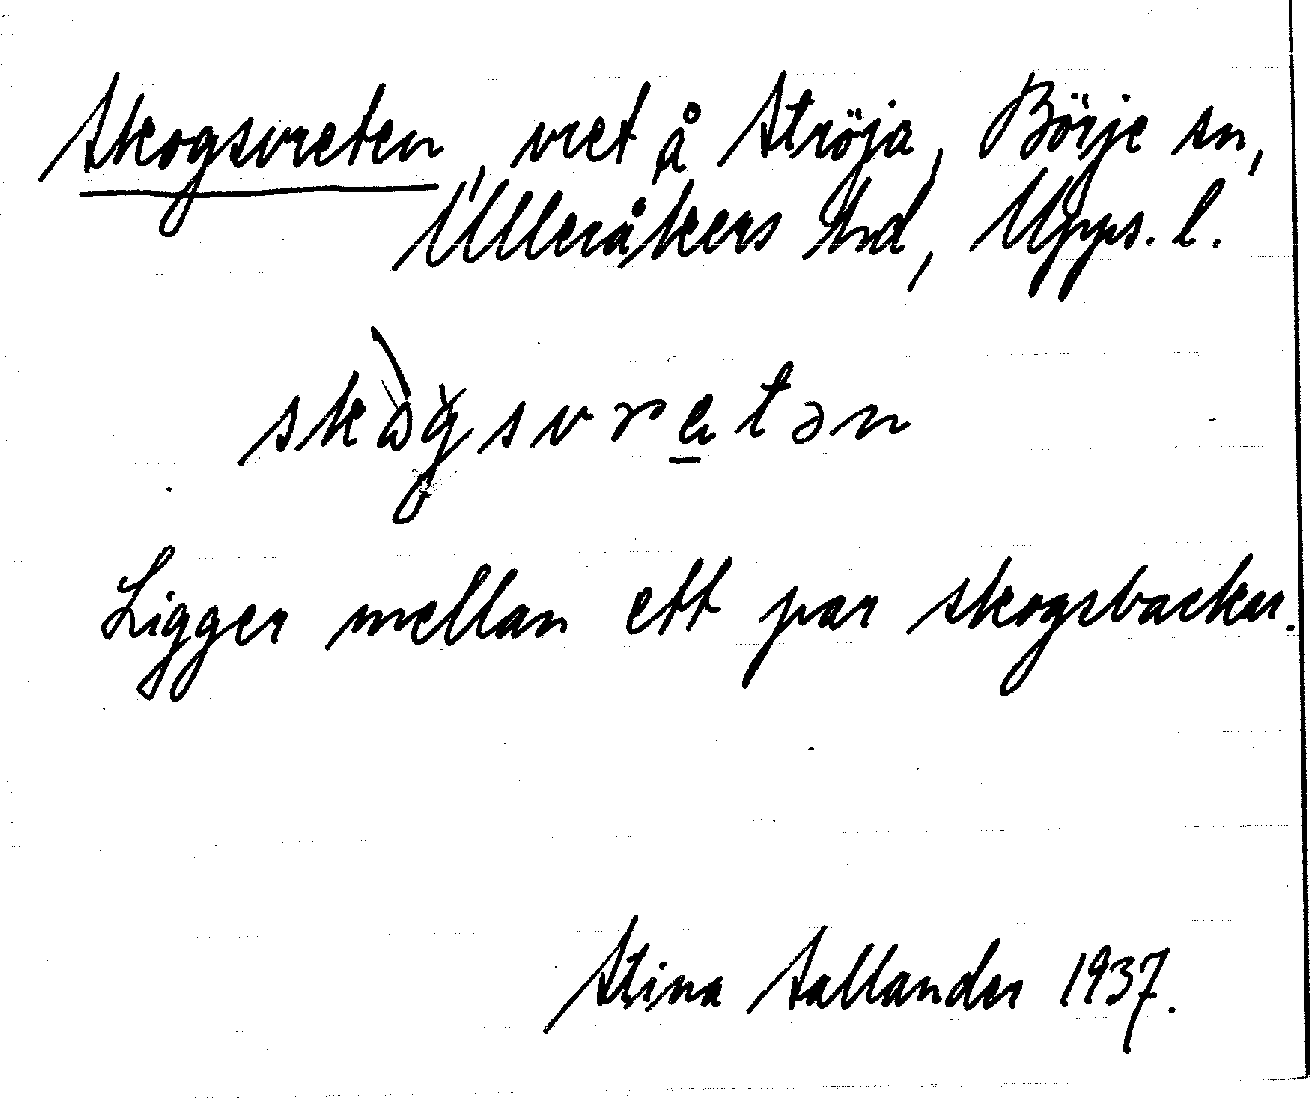 Skogsvreten, vret å Ströja, Börje sn,
Ulleråkers hd, Upps. l.
skògsvretən
Ligger mellan ett par skogsbackar.
Stina Sallander 1937.